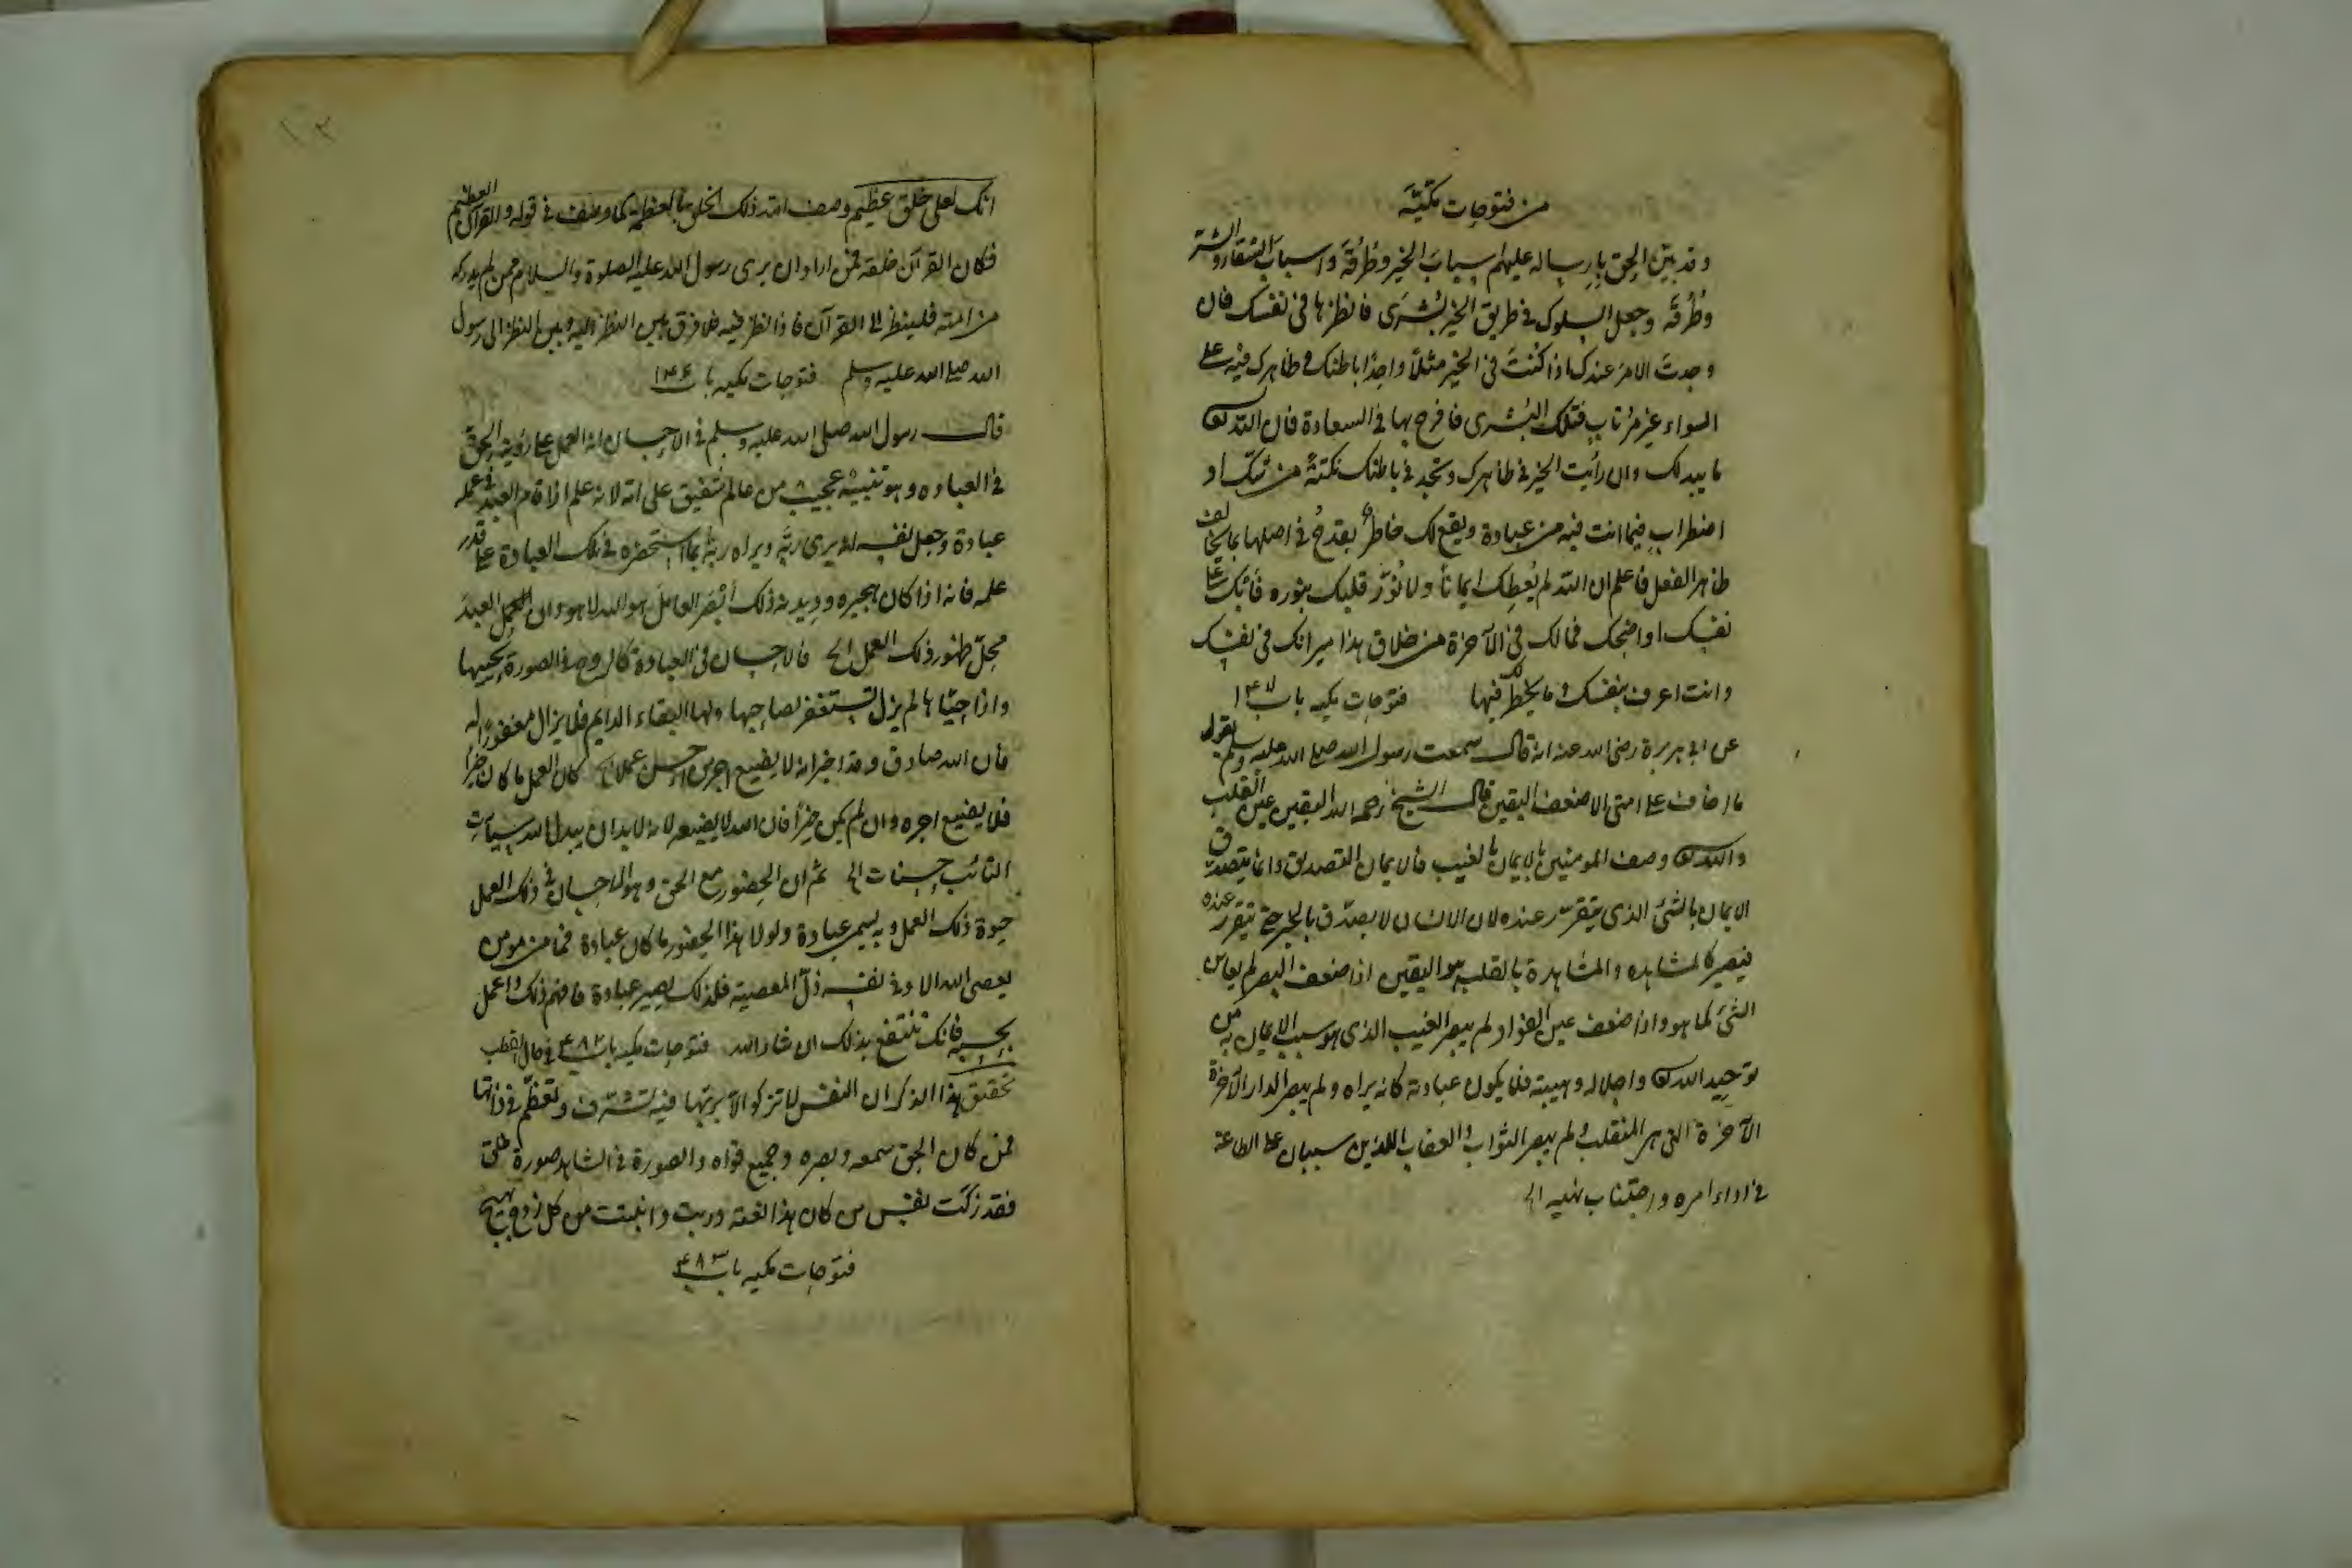 من فتوحات مكيّة
وقد بيّن الحق بارساله عليهم اسبابَ الخير وطُرُقَه واسبابَ الشقاء والشر
وطُرُقَه وجعل السلوك في طريق الخير بُشرَى فانظرها في نفسك فان
وجدتَ الامرَ عندك اذا كُنتَ في الخير مثلاً واحِدًا باطنك وظاهرك فيه على
السواء غير مُرتابٍ فتلك البُشرى فافرح بها في السعادة فان الله
ما يبدلك وان رأيت الخير في ظاهرك وتجد في باطنك نكتةً من شكّ او
اضطرابٍ فيما انت فيه من عبادة ويقع لك خاطرٌ يقدحُ في اصلها بما يخالف
ظاهر الفعل فاعلم ان الله لم يُعطِك ايمانًا ولا نَوَّر قلبك بنوره فابك على
نفسك او اضحك فما لك في الآخرة من خلاق هذا ميزانك في نفسك
وانت اعرف بنفسك وما يخطر لك فيها فتوحات مكيه باب ١٤٧
عن ابي هريرة رضي الله عنه انه قال سمعت رسول الله صلى الله عليه وسلم يقول
ما اخاف على امتي الا ضعف اليقين قال الشيخ رحمه الله اليقين عين القلب
والله وصف المومنين بالايمان بالغيب فالايمان التصديق وانما يتصدق
الايمان بالشئ الذي يتقرر عنده لان الانسان لا يصدّق بالخبر حتى يتقرر عنده
فيصير كالمشاهده والمشاهدة بالقلب هو اليقين اذا ضعف البصر لم يعاين
الشئ كما هو واذا ضعف عين الفؤاد لم يبصر الغيب الذي هو سبب الايمان به من
توحيد الله واجلاله وهيبته فلا يكون عبادته كانه يراه ولم يبصر الدار الآخرة
الآخرة التي هي المنقلب ولم يبصر الثواب والعقاب اللذين سببان على الطاعة
في اداء امره واجتناب نهيه الخ
١٣
انك لعلى خلق عظيم وصف الله ذلك الخلق بالعظمة كما وصف في قوله والقرآن العظيم
فكان القرآن خلقه فمن اراد ان يرى رسول الله عليه الصلوة والسلام ممن لم يدركه
من امته فلينظر الى القرآن فاذا نظر فيه فلا فرق بين النظر اليه وبين النظر الى رسول
الله صلى الله عليه وسلم فتوحات مكيه باب ١٤٦
قال رسول الله صلى الله عليه وسلم في الاحسان انه العمل على رؤية الحق
في العباده وهو تنبيه عجيب من عالم شفيق على امته لانه علم اذا قام العبد في عمله
عبادة وجعل نفسه انه يرى ربّه ويراه ربّه بما استحضره في تلك العبادة على قدر
علمه فانه اذا كان هجيره وديدنه ذلك أبصَر العامل هو الله لا هو وان العبدَ
محلّ ظهور ذلك العمل الخ فالاحسان في العبادة كالروح في الصورة يحييها
واذا حيّاها لم يزل تستغفر لصاحبها ولها البقاء الدايم فلا يزال مغفورًا له
فان الله صادق وقد اخبر انه لا يضيع اجر من احسن عملا كان العمل ما كان خيرا
فلا يضيع اجره وان لم يكن خيرًا فان الله لا يضيعه لانه لا بد ان يبدل الله سيآت
التائب حسنات الخ ثم ان الحضور مع الحق وهو الاحسان في ذلك العمل
حيوة ذلك العمل وبه يسمى عبادة ولولا هذا الحضور ما كان عبادة فما من مومن
يعصى الله الا وفي نفسه ذلّ المعصية فلذلك يصير عبادة فافهم ذلك واعمل
بحسبه فانك تنتفع بذلك ان شاء الله فتوحات مكيه باب ٤٨٢ في حال القطب
تحقيق هذا الذكر ان النفس لا تزكو الا بربّها فبه تشرّف وتعظّم في ذاتها
فمن كان الحق سمعه وبصره وجميع قواه والصورة في الشاهد صورة خلق
فقد زكت نفس من كان هذا نعته وربت وانبتت من كل زوج بهيج
فتوحات مكيه باب ٤٨٣